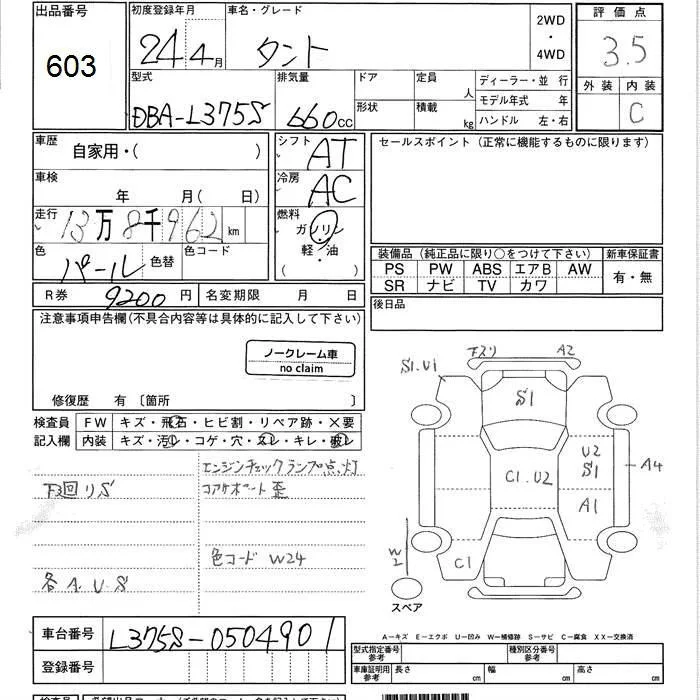 出品番号
603
初度登録年月
24年4月
車名・グレード
タント
2WD
・
4WD
評価点
3.5
外装 内装
C
型式
DBA-L375S
排気量
660cc
ドア
形状
定員
人
積載
kg
ディーラー・並 行
モデル年式 年
ハンドル 左・右
車歴
自家用・( )
車検
年 月( 日)
走行
13万8千962km
色
パール
色替
色コード
シフト
AT
冷房
AC
燃料
ガソリン
軽・油
セールスポイント (正常に機能するものに限ります)
装備品 (純正品に限り○をつけて下さい)
新車保証書
PS PW ABS エアB AW
SR ナビ TV カワ
有・無
R券 9200円
名変期限 月 日
後日品
注意事項申告欄(不具合内容等は具体的に記入して下さい)
ノークレーム車
no claim
修復歴 有 〔箇所 〕
検査員
記入欄
FW キズ・飛石・ヒビ割・リペア跡・×要
内装 キズ・汚レ・コゲ・穴・スレ・キレ・破レ
エンジンチェックランプ点灯
下回りS
コアサポート歪
色コード W24
各A.U.S
下スリ A2
S1.U1
S1
U2
S1
C1.U2
A4
A1
W2
C1
スペア
A−キズ E−エクボ U−凹み W−補修跡 S−サビ C−腐食 XX−交換済
車台番号
L375S-0504901
登録番号
型式指定番号
参考
種別区分番号
参考
車庫証明用
参考
長さ cm
幅 cm
高さ cm